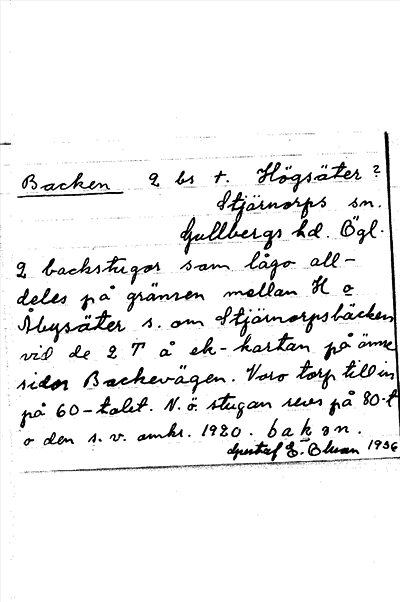 Backen 2 bs t. Högsäter?
Stjärnorps sn.
Gullbergs hd. Ögl.
2 backstugor som lågo all-
deles på gränsen mellan H o
Åbysäter s. om Stjärnorpsbäcken
vid de 2 T å ek-kartan på ömse
sidor Backevägen. Voro torp till in
på 60-talet. N.ö. stugan revs på 80-t
o den s.v. omkr. 1920. bakɘn.
Gustaf E. Blman 1936